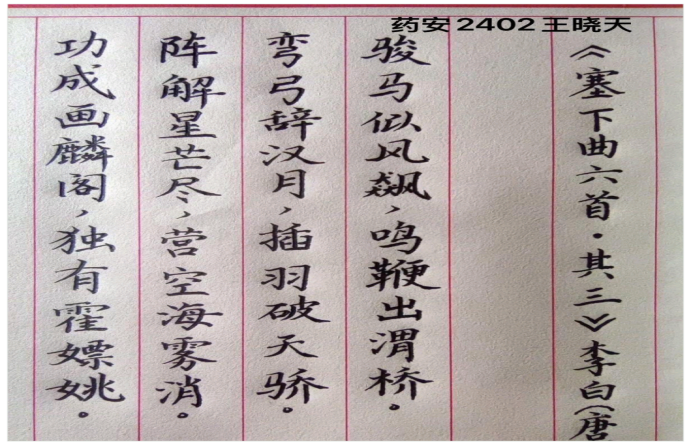 药安2402王晓天
《塞下曲六首·其三》李白(唐
骏马似风飙,鸣鞭出渭桥。
弯弓辞汉月,插羽破天骄。
阵解星芒尽,营空海雾消。
功成画麟阁,独有霍嫖姚。